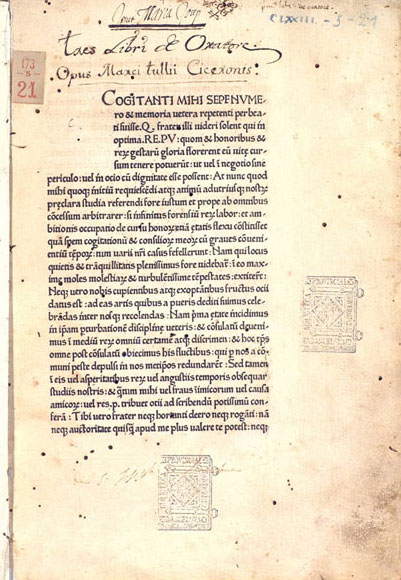 Opus Marci
CLXXIII - 3 - 21
tres Libri de Oratore
Opus Marci tullii Ciceronis
173
21
COGITANTI MIHI SEPENVME/
ro & memoria uetera repetenti perbea/
ti fuisse. Q. frater illi uideri solent qui in
optima. RE.PV: quom & honoribus &
reꝝ gestarū gloria florerent eū uitę cur/
sum tenere potuerūt: ut uel ī negotio sine
periculo: uel in ocio cū dignitate esse possent: At nunc quod
mihi quoqꝫ initiū requiescēdi atqꝫ animū ad utriusqꝫ nostꝝ
pręclara studia referendi fore iustum et prope ab omnibus
cōcessum arbitrarer: si infinitus forēsiū reꝝ labor: et am/
bitionis occupatio de cursu honorꝝ etiā ętatis flexu cōstitisset
quā spem cogitationū & consilioꝝ meoꝝ cū graues cōueni/
entiū tēpoꝝ: tum uarii nr̄i casus fefellerunt: Nam qui locus
quietis & trāquillitatis plenissimus fore uidebat̄: ī eo max/
imę moles molestiaꝝ & turbulētissimę tēpestates: extiterē:
Neqꝫ uero nobis cupientibus atqꝫ exoptātibus fructus ocii
datus est: ad eas artis quibus a pueris dediti fuimus cele/
brādas inter nosqꝫ recolendas: Nam pᵢma ętate incidimus
in ipam pturbationē disciplinę ueteris: & cōsulatu deueni/
mus ī mediū reꝝ omniū certamē atqꝫ discrimen: & hoc tp̄s
omne post cōsulatū obiecimus his fluctibus: qui p nos a cō
muni peste depulsi in nos metipos redundarēt: Sed tamen
ī eis uel asperitatibus reꝝ uel angustiis temporis obsequar
studiis nostris: & quātum mihi uel fraus īimicorum uel causa
amicoꝝ: uel res.p. tribuet otii ad scribendū potissimū con/
ferā: Tibi uero frater neqꝫ hortanti deero neqꝫ rogāti: nā
neqꝫ auctoritate quisqꝫ apud me plus ualere te potest: neqꝫ